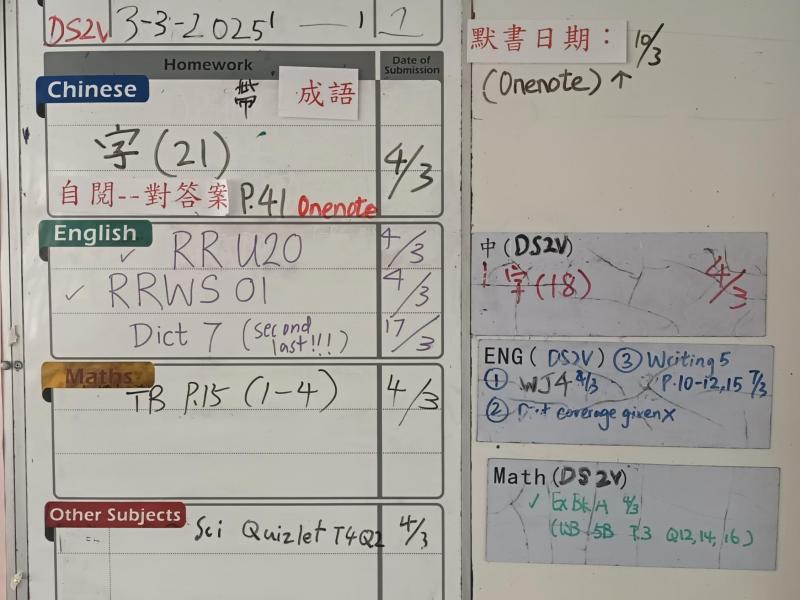 DS2V 3-3-2025
默書日期： 10/3
(Onenote) ↑
Homework
Date of Submission
Chinese
帶 成語
字(21) 4/3
自閱--對答案 P.41 Onenote
English
✓ RR U20 4/3
✓ RRWS 01 4/3
Dict 7 (second last!!!) 17/3
Maths
TB P.15 (1-4) 4/3
Other Subjects
Sci Quizlet T4Q2 4/3
中(DS2V)
字(18) 4/3
ENG( DS2V) ③ Writing 5
① WJ4 4/3 P.10-12,15 7/3
② coverage given x
Math(DS2V)
✓ Ex Bk A 4/3
(WB 5B Q12,14, 16)